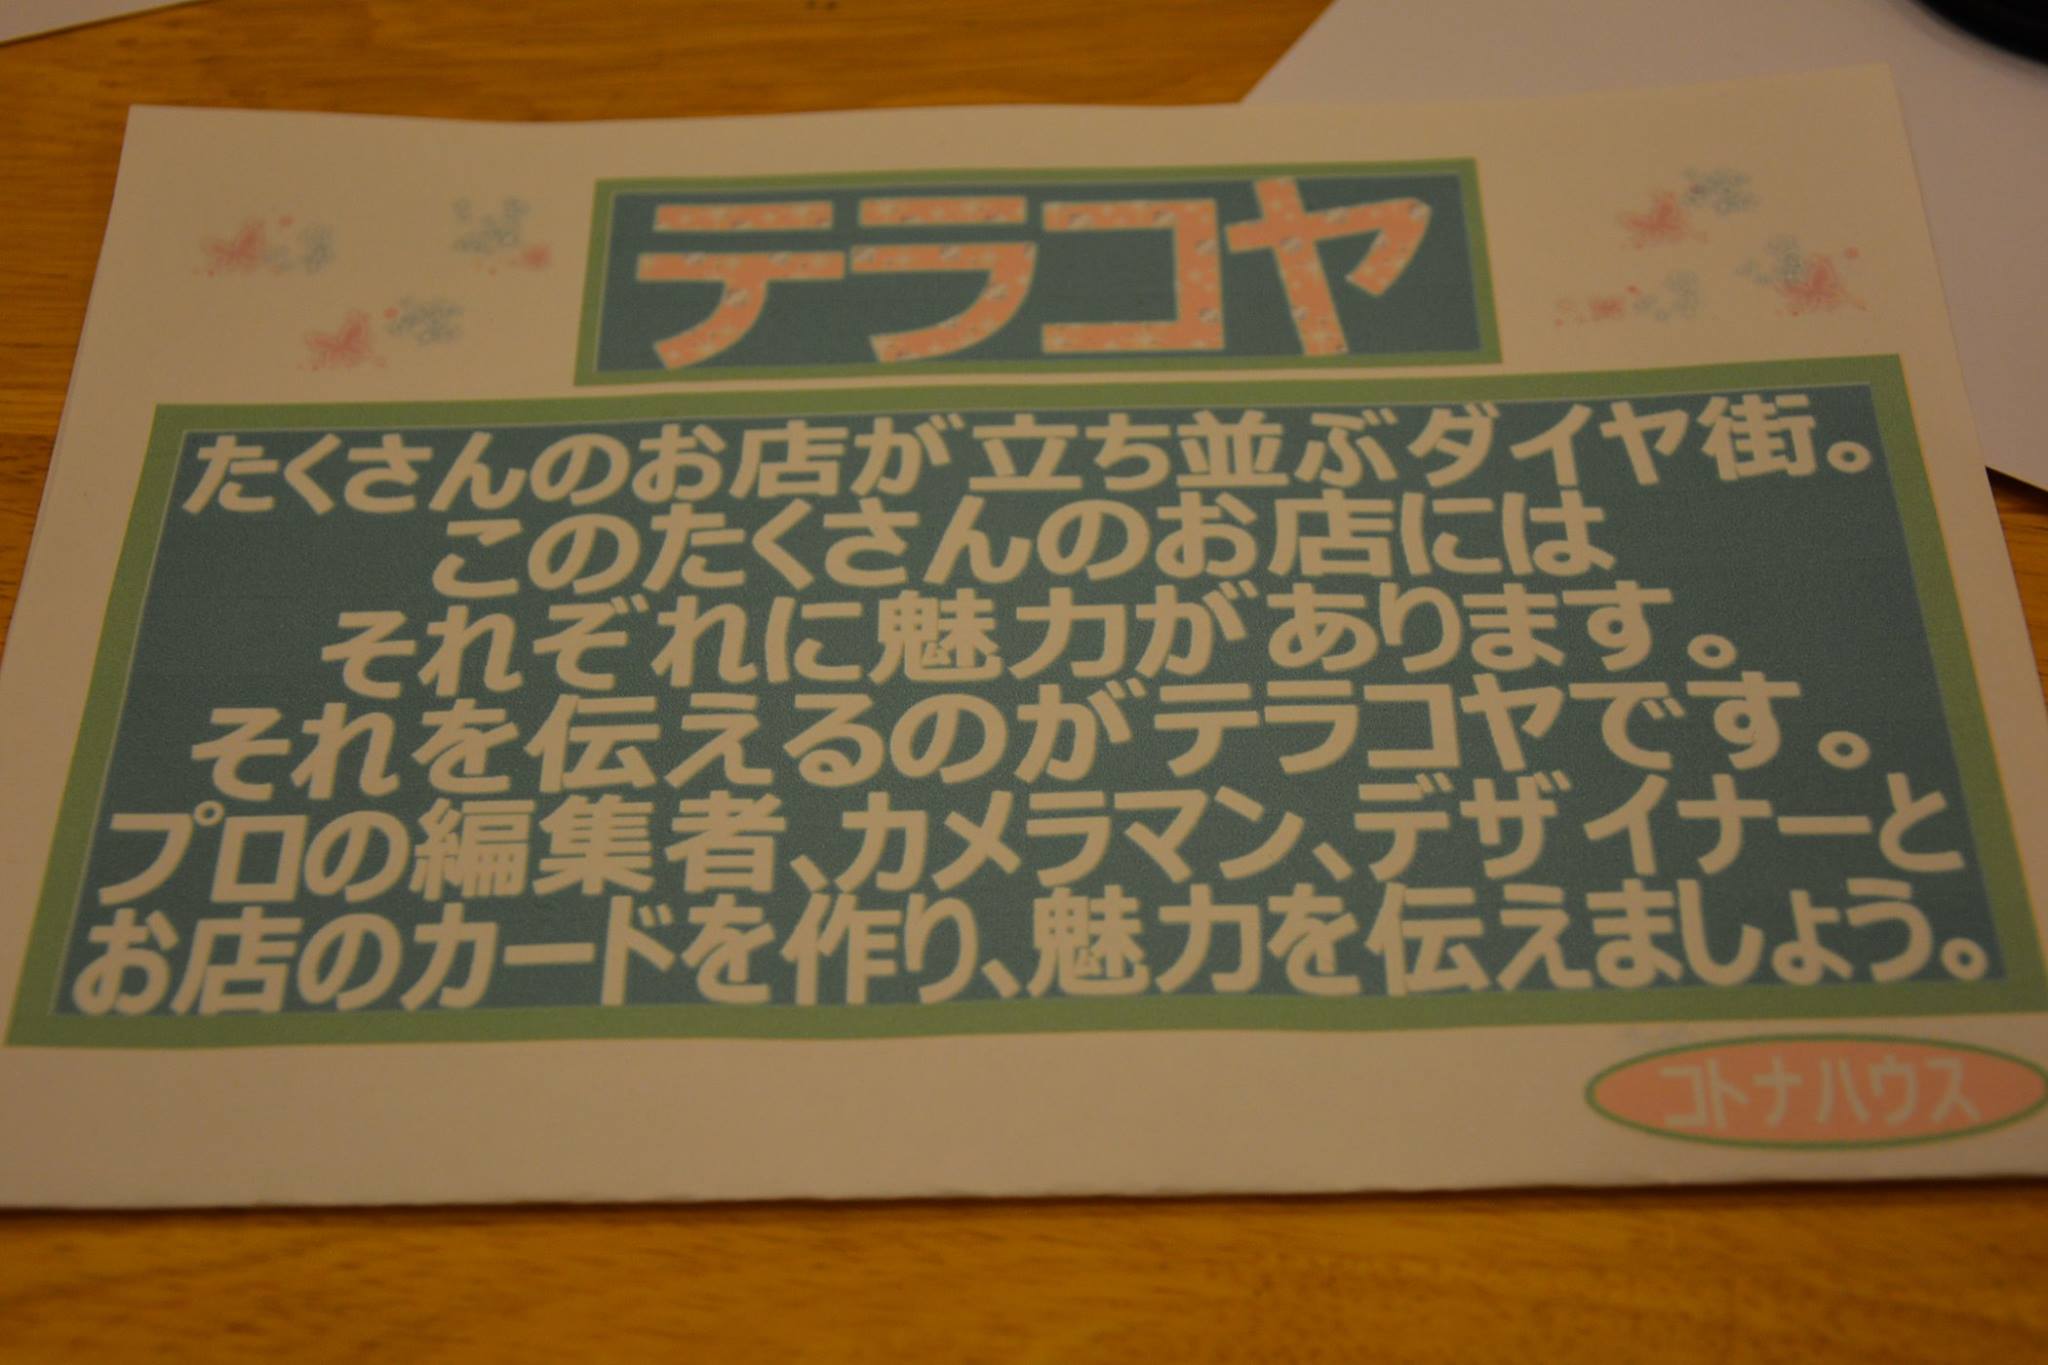 テラコヤ
たくさんのお店が立ち並ぶダイヤ街。
このたくさんのお店には
それぞれに魅力があります。
それを伝えるのがテラコヤです。
プロの編集者、カメラマン、デザイナーと
お店のカードを作り、魅力を伝えましょう。
コトナハウス